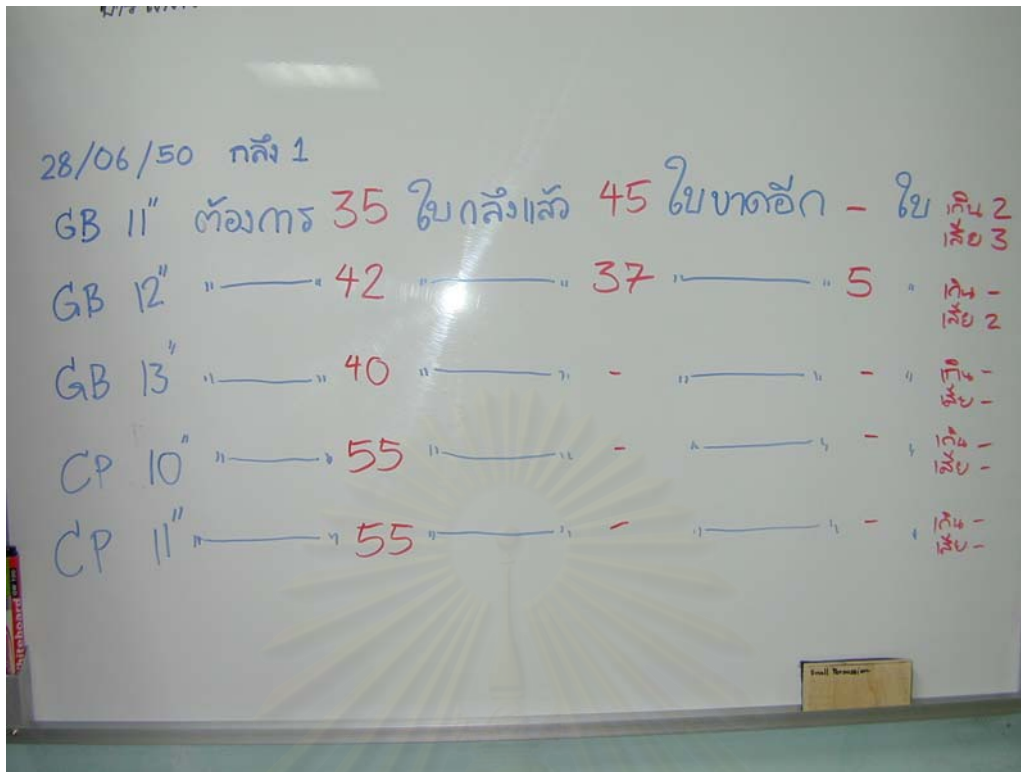 28/06/50 กลึง 1
GB 11" ต้องการ 35 ใบกลึงแล้ว 45 ใบขาดอีก - ใบ เกิน 2
เสีย 3
GB 12" "———" 42 "———" 37 "———" 5 " เกิน -
เสีย 2
GB 13" "———" 40 "———" - "———" - " เกิน -
เสีย -
CP 10" "———" 55 "———" - "———" - " เกิน -
เสีย -
CP 11" "———" 55 "———" - "———" - " เกิน -
เสีย -
Whiteboard
Small Percussion